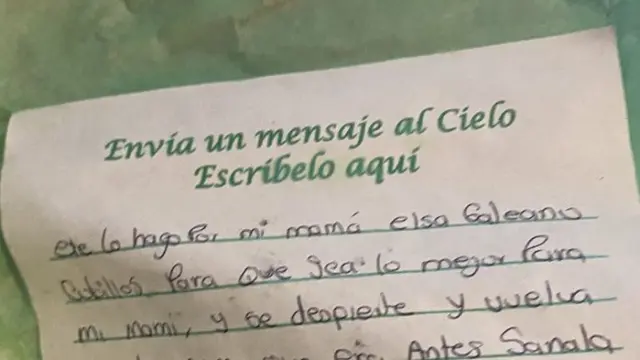 Envía un mensaje al Cielo
Escríbelo aquí
lo hago Por mi mamá elsa Galeano
Para Que sea lo mejor Para
mi mami, y se despierte y vuelva
Antes Sanala